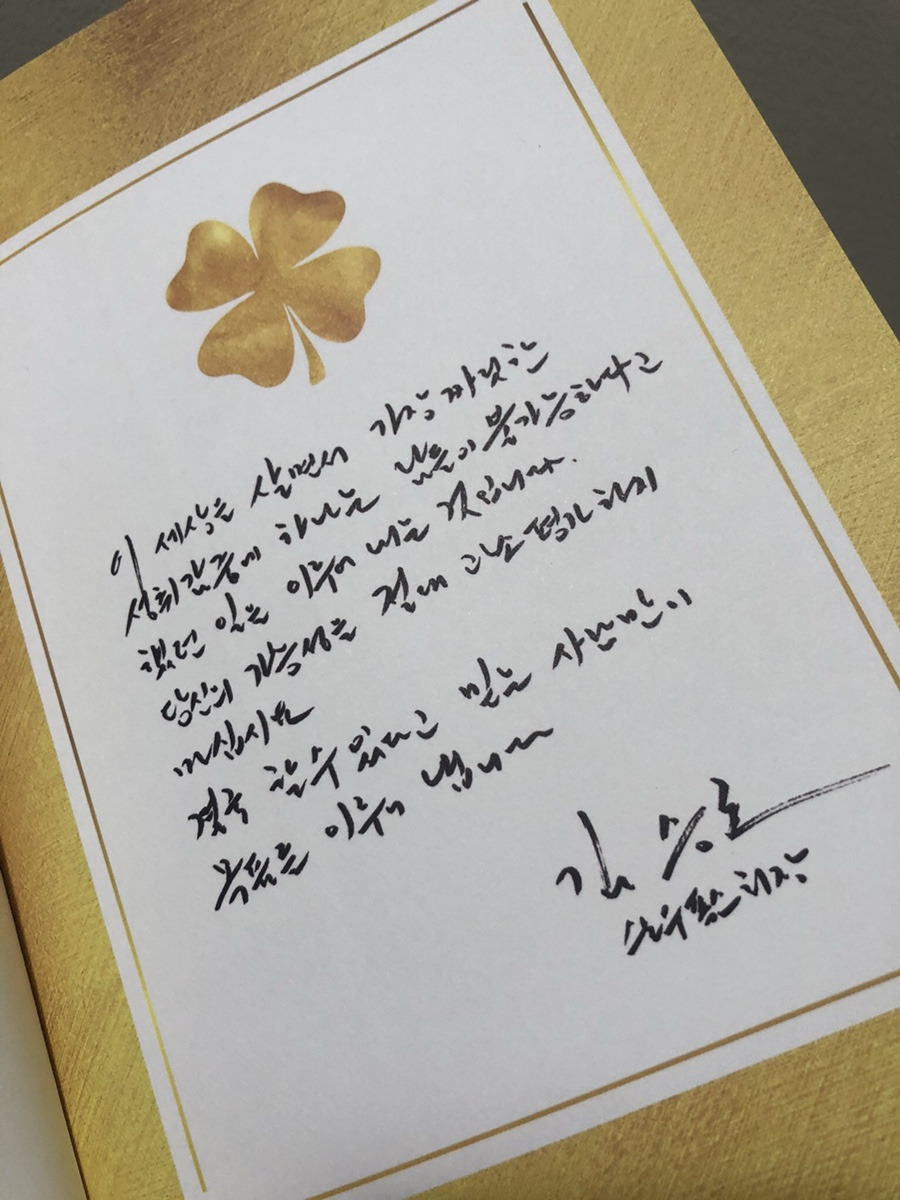 이 세상을 살면서 가장 짜릿한
성취감 중에 하나는 남들이 불가능하다고
했던 일을 이루어 내는 것입니다.
당신의 가능성을 절대 과소평가하지
마십시요
결국 할 수 있다고 믿는 사람만이
목표를 이루어 냅니다
김승호
스노우폭스 회장